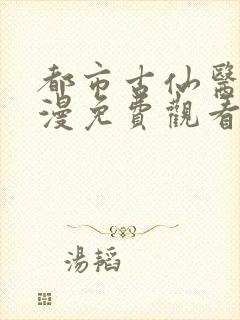 都市古仙醫
漫免費觀看
湯韜